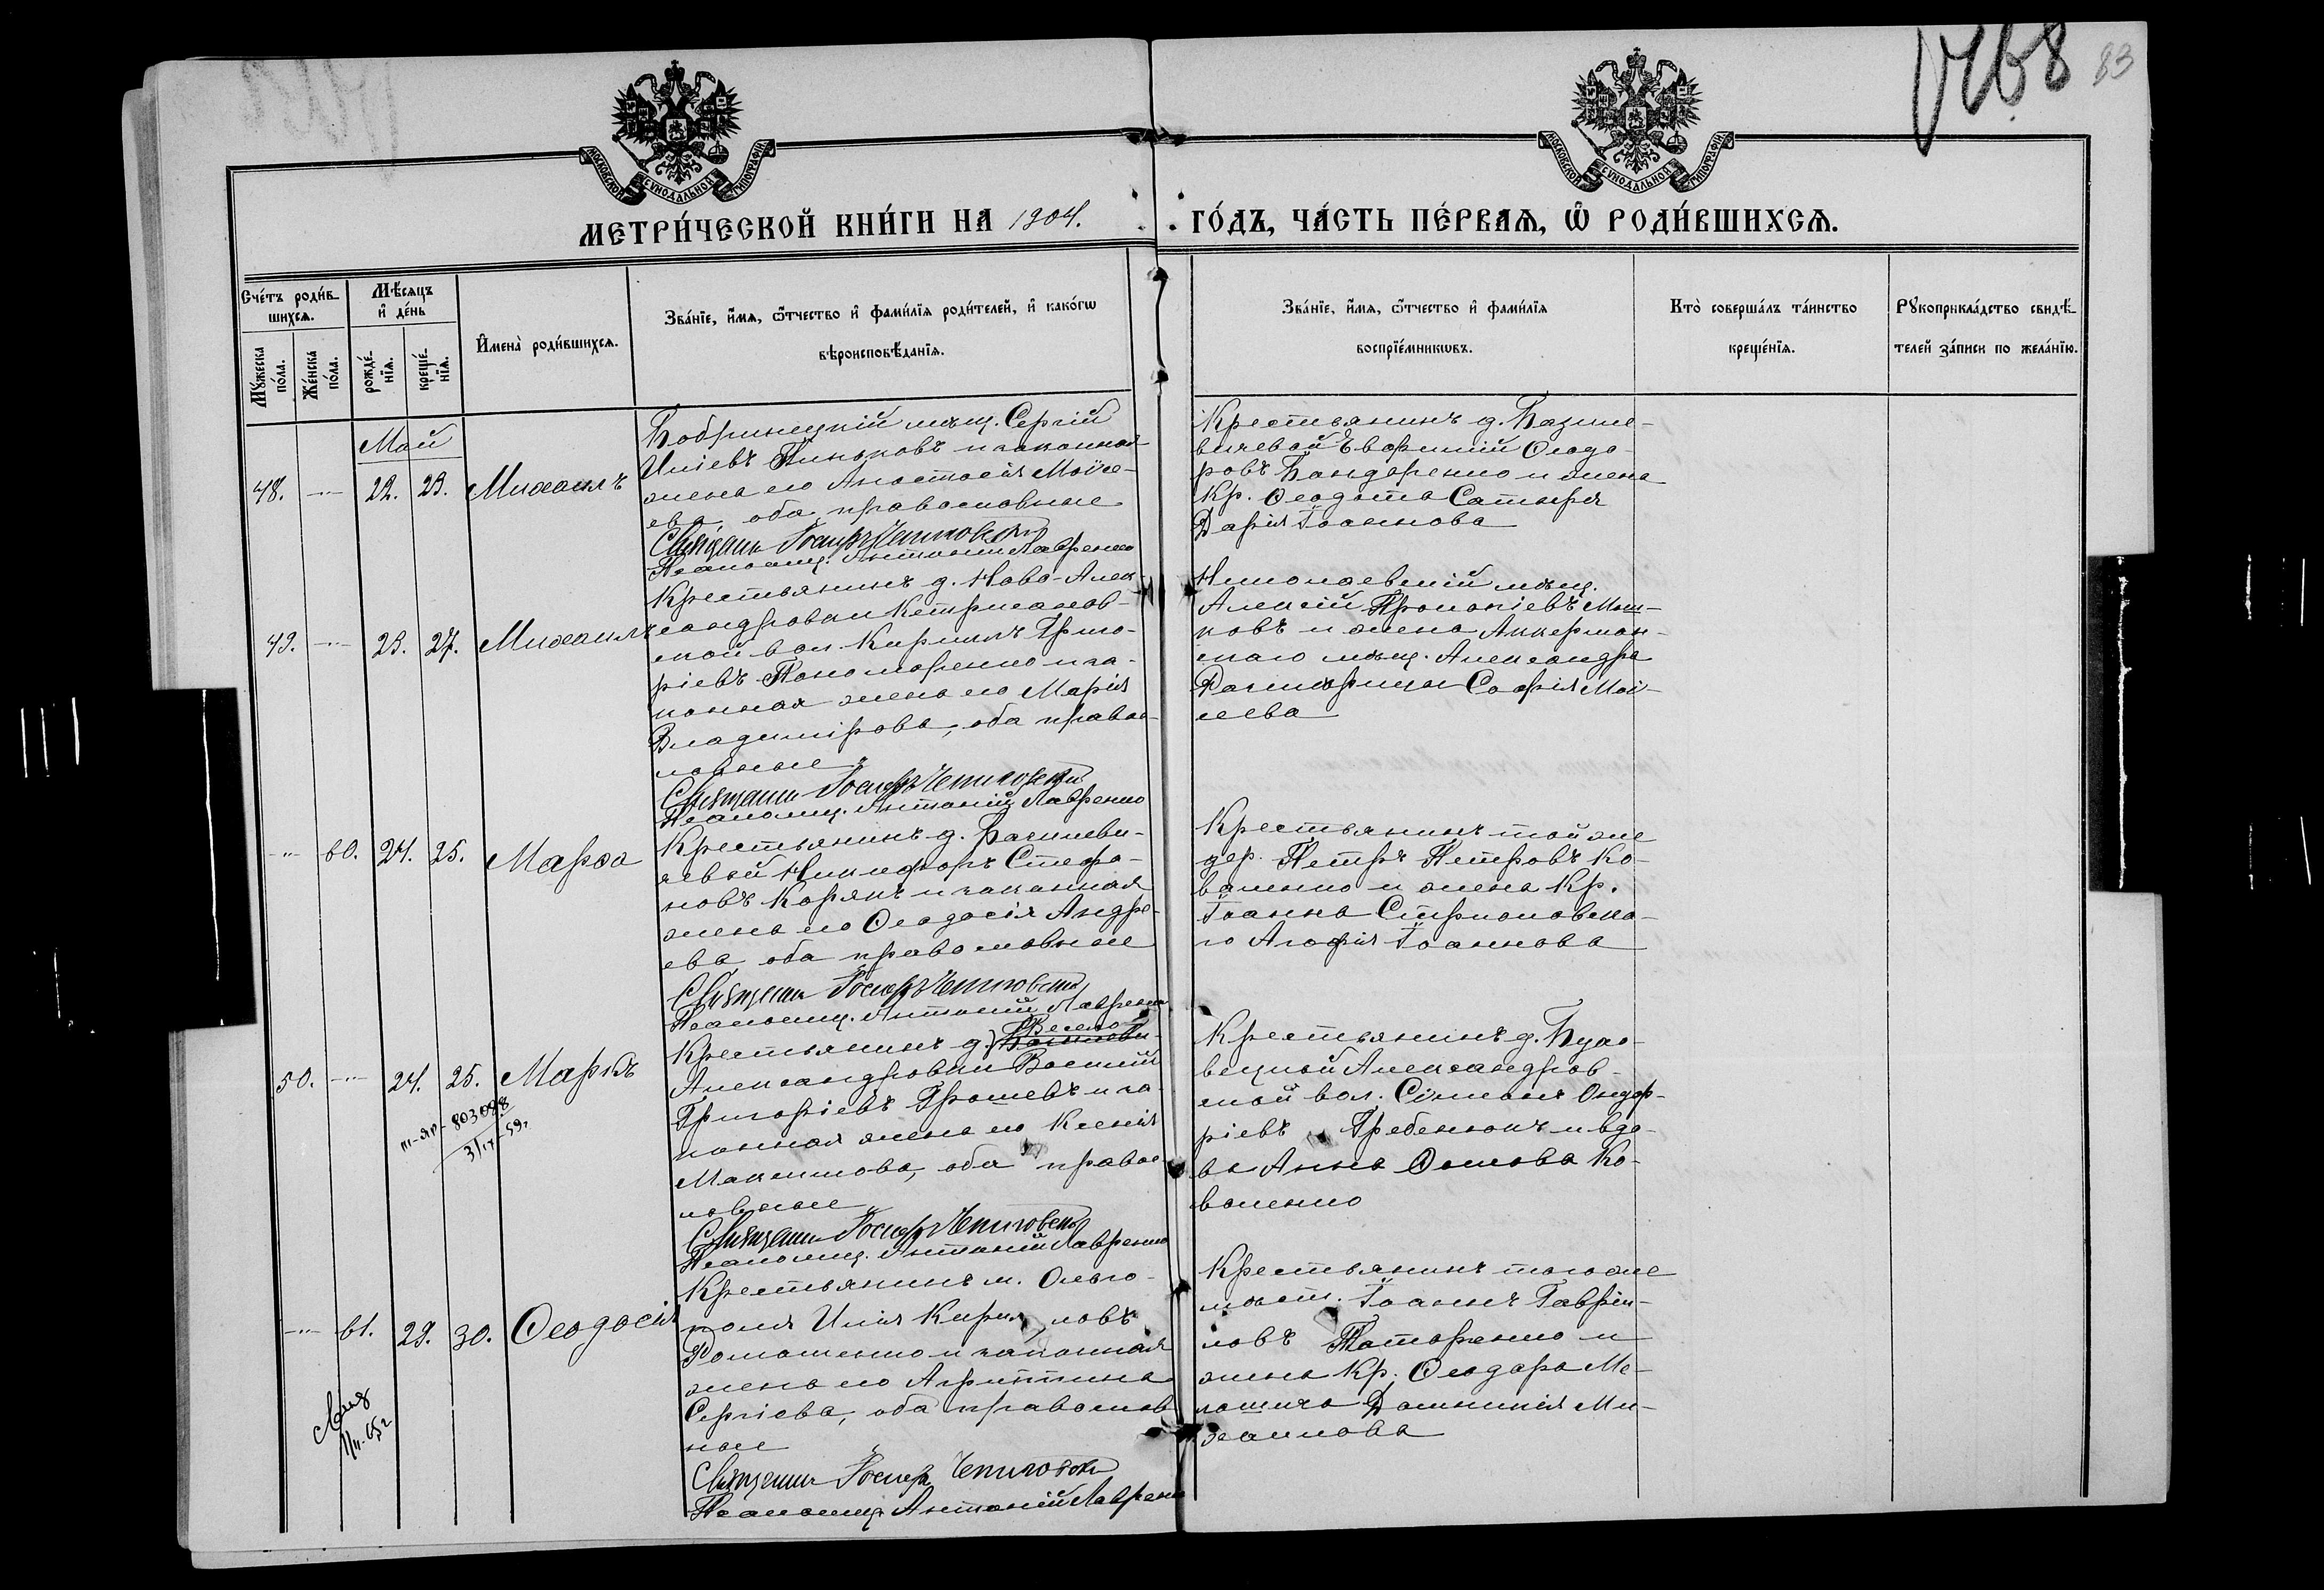 1768 83
МОСКОВСКОЙ СѴНОДАЛЬНОЙ ТИПОГРАФІИ
МОСКОВСКОЙ СѴНОДАЛЬНОЙ ТИПОГРАФІИ
МЕТРИ́ЧЕСКОЙ КНИ́ГИ НА 1904. ГО́ДЪ, ЧА́СТЬ ПЕ́РВАѦ, Ѡ҃ РОДИ́ВШИХСѦ.
Сче́тъ роди́в-
шихсѧ.
Мѣ́сѧцъ
и҆ де́нь
Мꙋ́жеска
по́ла.
Же́нска
по́ла.
рожде́-
нїѧ.
креще́-
нїѧ.
И҆мена̀ роди́вшихсѧ.
Зва́нїе, и҆́мѧ, ѻ҆́тчество и҆ фами́лїѧ роди́телей, и҆ како́гѡ
вѣроисповѣ́данїѧ.
Зва́нїе, и҆́мѧ, ѻ҆́тчество и҆ фами́лїѧ
воспрїе́мникѡвъ.
Кто̀ соверша́лъ та́инство
креще́нїѧ.
Рꙋкоприкла́дство свидѣ́-
телей за́писи по жела́нїю.
Май
48. -"- 22. 23. Михаилъ
Бобринецкій мѣщ. Сергій
Иліевъ Пиньковъ и законная
жена его Анастасія Моѵсе-
ева, оба православные
Священн. Іосифъ
Псаломщ. Антоній Лавренко
Крестьянинъ д. Базиле-
вичевой Евфимій Ѳеодо-
ровъ Бондаренко и жена
Кр. Ѳеодота Сатыря
Дарія Іоаннова
49. -"- 23. 27. Михаилъ
Крестьянинъ д. Ново-Алек-
сандровки Кетрисанов-
ской вол. Кириллъ Григо-
ріевъ Пономаренко и за-
конная жена его Марія
Владимірова, оба правос-
лавные
Священн. Іосифъ
Псаломщ. Антоній Лавренко
Николаевскій мѣщ.
Алексій Прокопіевъ Мош-
ковъ и жена Аккерман-
скаго мѣщ. Александра
Софія Мои-
сеева
-"- 60. 24. 25. Марѳа
Крестьянинъ д. Базилеви-
чевой Никифоръ Стефа-
новъ Корякъ и законная
жена его Ѳеодосія Андре-
ева оба православные
Священн. Іосифъ
Псаломщ. Антоній Лавренко
Крестьянинъ той же
дер. Петръ Петровъ Ко-
валенко и жена Кр.
Іоанна Стриповска-
го Агафія Іоаннова
50. -"- 24. 25. Маркъ
803098
Крестьянинъ д. Весело-
Александровки Василій
Григоріевъ Грошевъ и за-
конная жена его Ксенія
Максимова, оба правос-
лавные
Священн. Іосифъ
Псаломщ. Антоній Лавренко
Крестьянинъ д. Буго-
вецкой Александров-
ской вол. Сѵмеонъ Онуф-
ріевъ Гребенюкъ и вдо-
ва Анна Осипова Ко-
валенко
-"- 61. 29. 30. Ѳеодосія
Крестьянинъ м. Ольго-
поля Илія Кириловъ
Ромашенко и законная
жена его Агриппина
Сергіева, оба православ-
ные
Священн. Іосифъ
Псаломщ. Антоній Лавренко
Крестьянинъ того же
мѣст. Іоаннъ Гаврі-
ловъ Титаренко и
жена Кр. Ѳеодора Ме-
лашича Домникія Ми-
хаилова